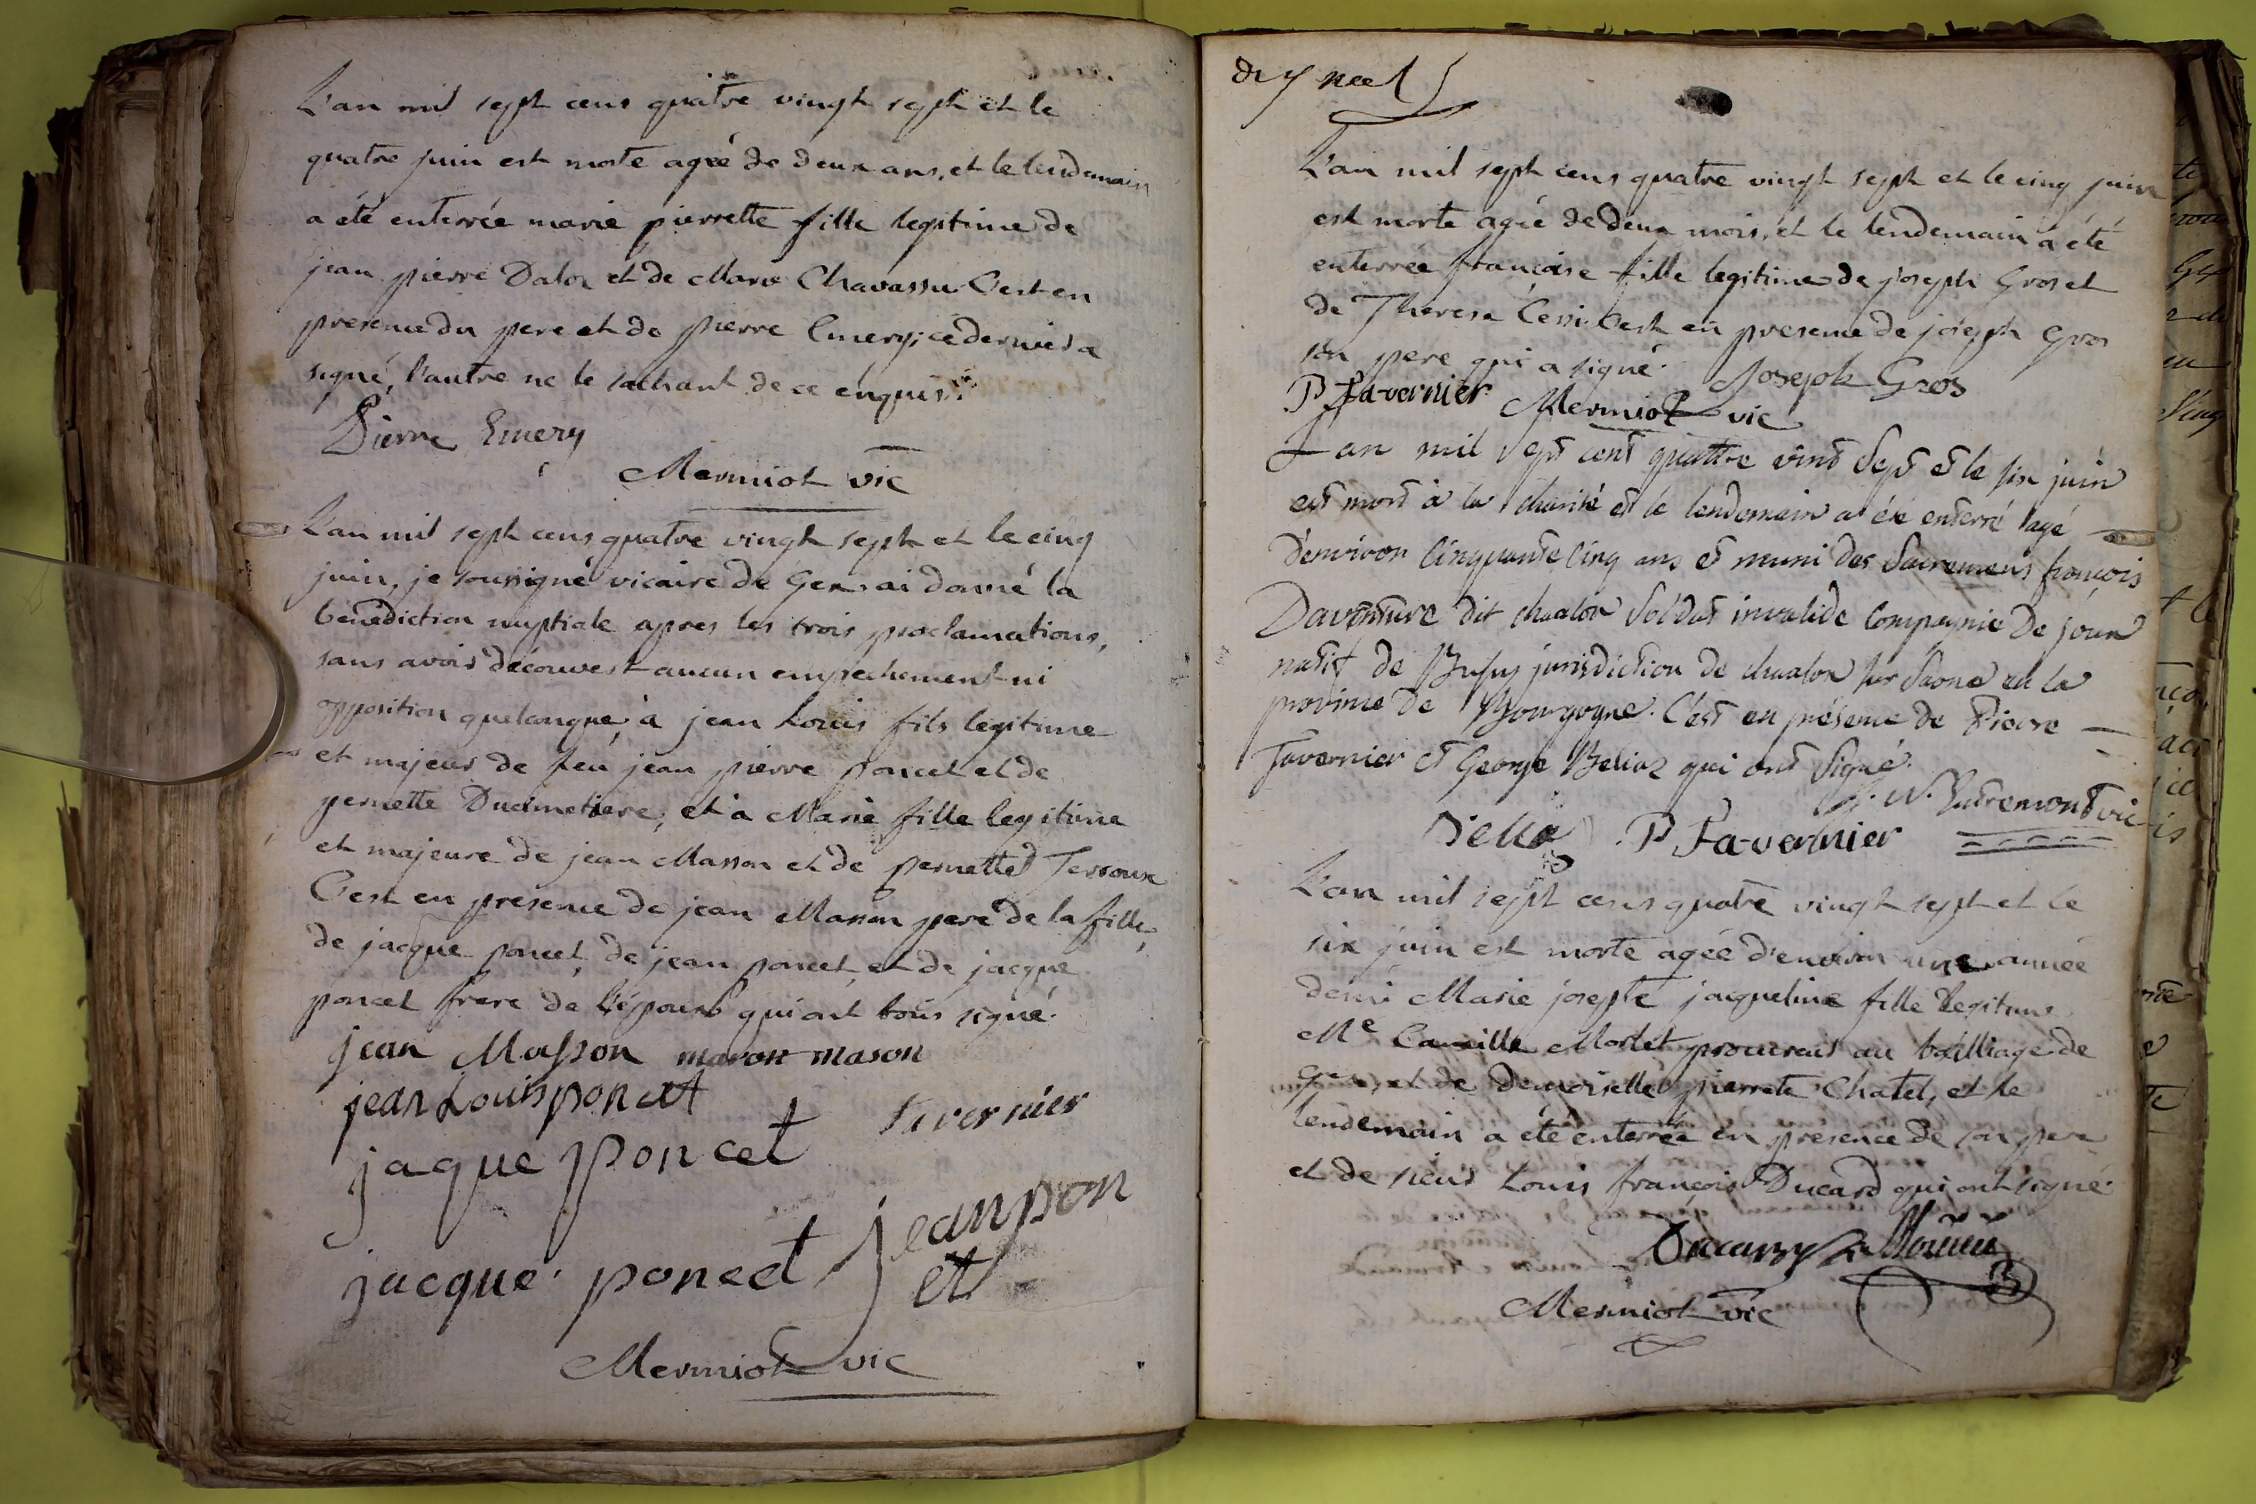 L'an mil sept cens quatre vingt sept et le
quatre juin est morte agée de deux ans, et le lendemain
a été enterrée marie pierrette fille legitime de
jean pierre Daloz et de Marie Chavassu C'est en
presence du pere et de pierre Emery; ce dernier a
signé, l'autre ne le sachant de ce enquis.
Pierre Emery
Mermiot vic
L'an mil sept cens quatre vingt sept et le cinq
juin, je soussigné vicaire de Gex ai donné la
bénédiction nuptiale apres les trois proclamations,
sans avoir découvert aucun empechement ni
opposition quelconque, à jean Louis fils legitime
et majeur de feu jean pierre poncet et de
pernette Ducimetiere, et à Marie fille legitime
et majeure de jean Masson et de pernette Terroux
C'est en presence de jean Masson pere de la fille,
de jacque poncet, de jean poncet, et de jacque
poncet frere de l'époux qui ont tous signé.
jean Masson maron mason
jean Louis poncet
tavernier
jaque poncet
jean pon
cet
jacque poncet
Mermiot vic
L'an mil sept cens quatre vingt sept et le cinq juin
est morte agée de deux mois, et le lendemain a été
enterrée françoise fille legitime de joseph Gros et
de Therese C'est en presence de joseph Gros
son pere qui a signé. Joseph Gros
P Tavernier Mermiot vic
L'an mil sept cent quattre vint sept et le six juin
est mort à la charité et le lendemain a éte enterré agé
d'environ cinquante cinq ans et muni des sacremens françois
Davanture dit chaalon soldat invalide compagnie De
natif de jurisdiction de chaalon sur saone en la
province de Bourgogne. C'est en présence de Pierre
Tavernier et George Beliaz qui ont signé.
vic
P Tavernier
L'an mil sept cens quatre vingt sept et le
six juin est morte agée d'environ une année
demi Marie josepte jacqueline fille legitime
Me Camille Mortet procureur au bailliage de
Gex, et de demoiselle pierrete Chatel, et le
lendemain a été enterrée en présence de son pere
et de sieur Louis françois Ducard qui ont signé.
Mermiot vic